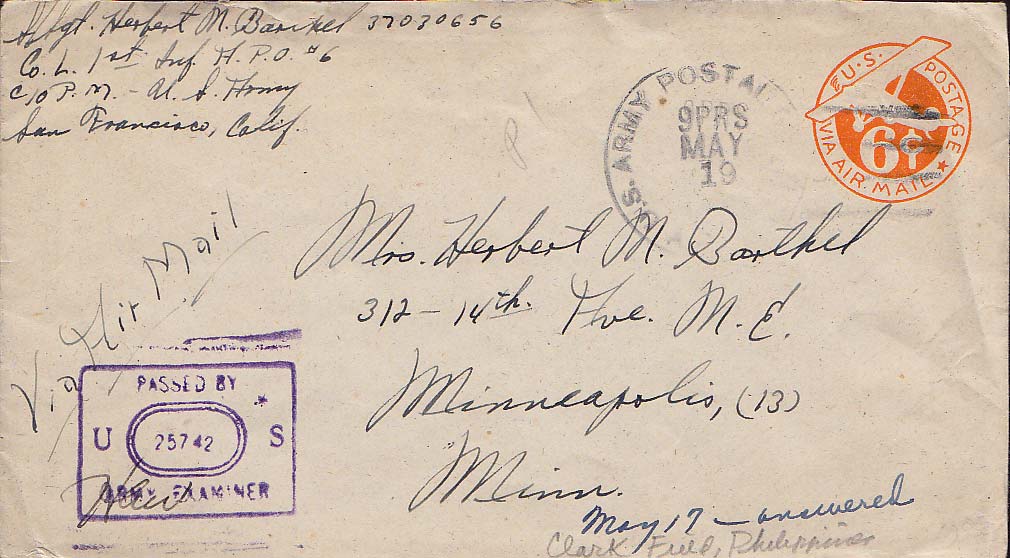 S/Sgt. Herbert M. Barthel 37030656
Co. L. 1st Inf. A.P.O. #6
c/o P.M. - U.S. Army
San Francisco, Calif.
U.S. ARMY POSTAL
9PRS
MAY
19
U.S. POSTAGE
6¢
VIA AIR MAIL
Via Air Mail
Mrs. Herbert M. Barthel
312 - 14th. Ave. N.E.
Minneapolis, (13)
Minn.
PASSED BY
U 25742 S
ARMY EXAMINER
May 17 - answered
Clark Field, Philippines